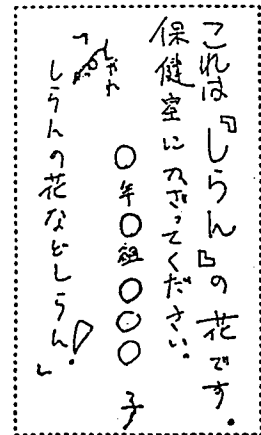 これは『しらん』の花です。
保健室にかざってください。
○年○組○○○子
しゃれ
「しらんの花などしらん!」